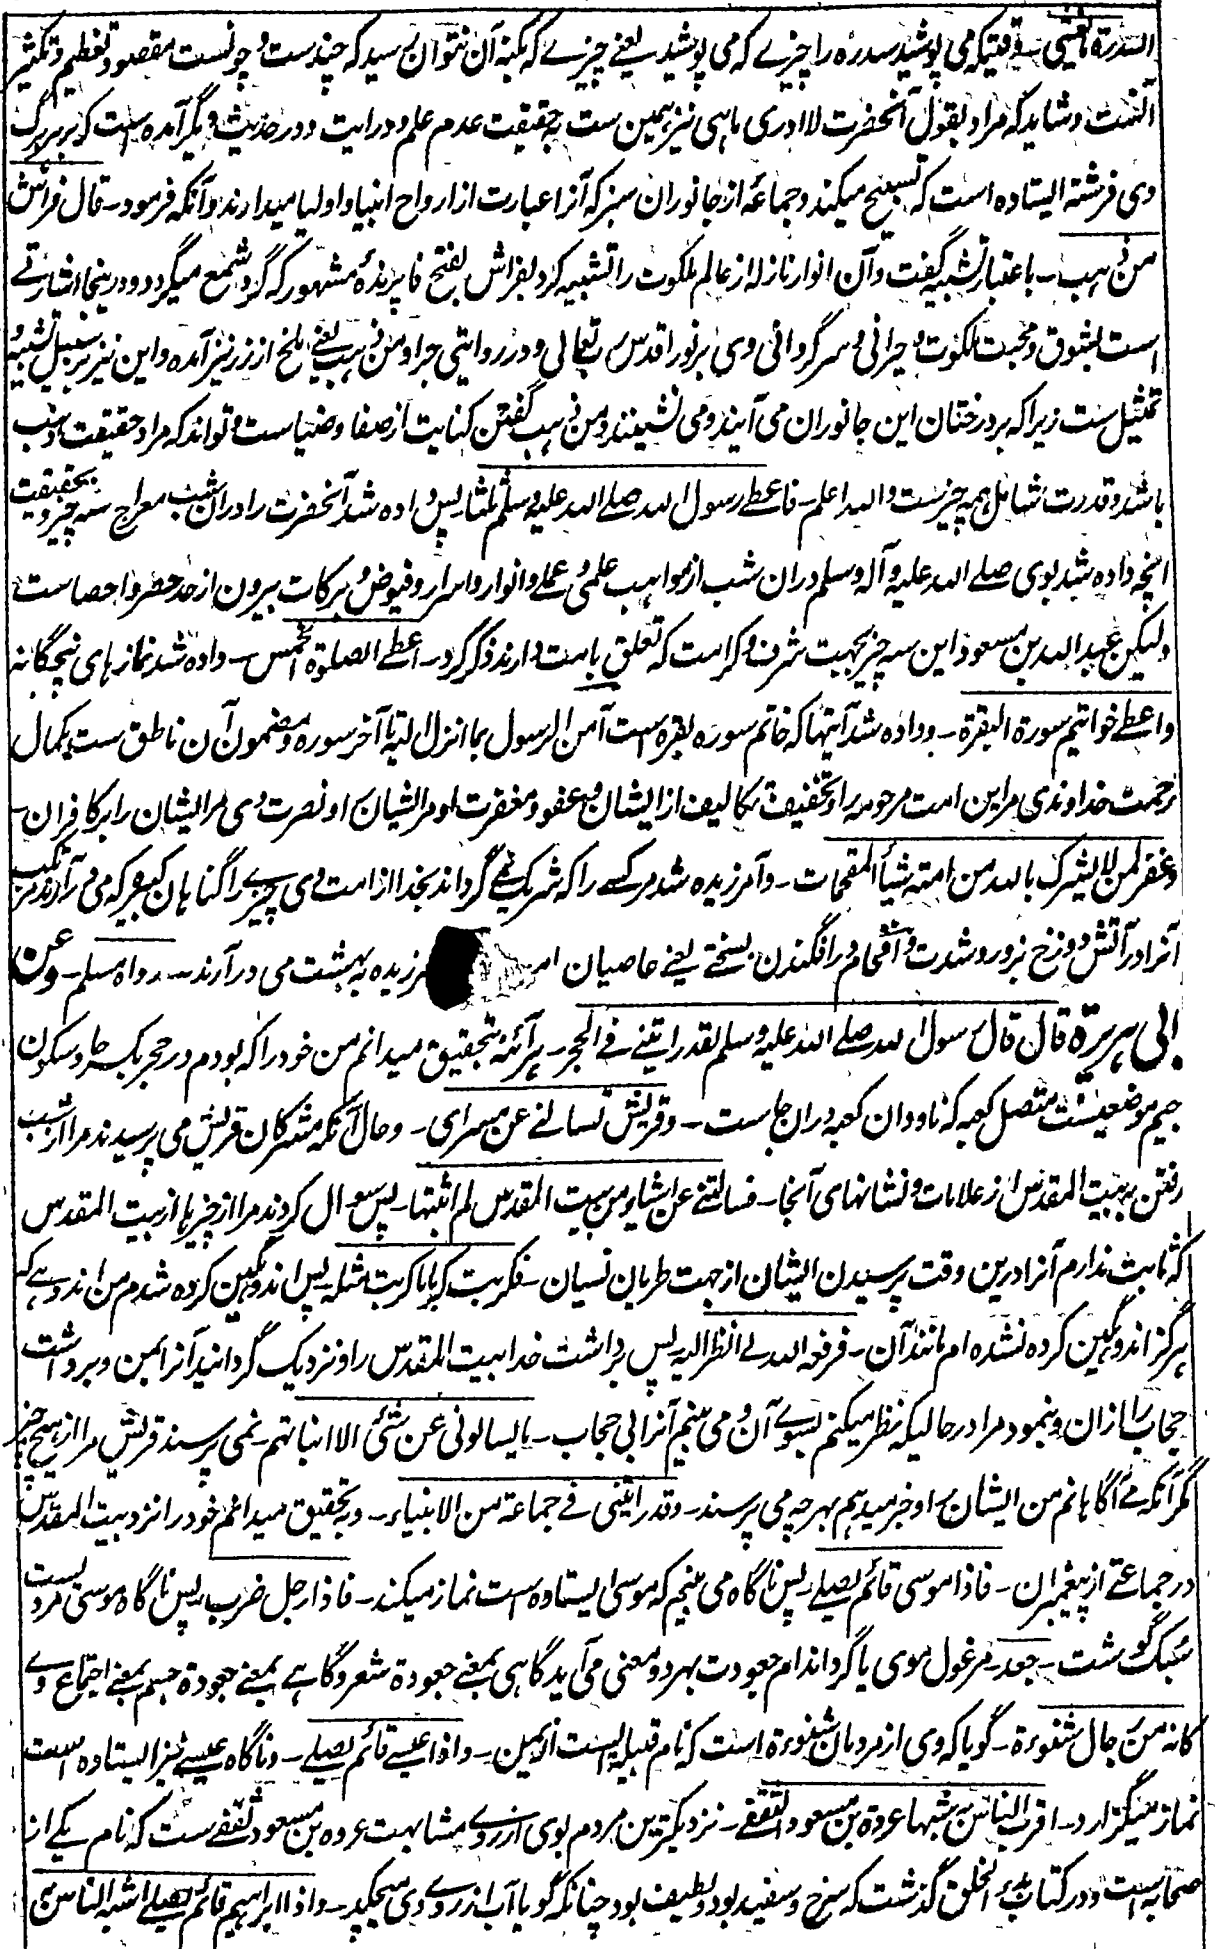 السدرة ما یغشی ـ وقتیکه می پوشید سدره را چیزے که می پوشید یعنے چیزے که بکنه آن نتوان رسید که چندست و چونست مقصود تعظیم و تکثیر
آنست و شاید که مراد بقول آنحضرت لا ادری ما هی نیز همین ست نه حقیقت عدم علم و درایت و در حدیث دیگر آمده است که بر هر برگ
وی فرشته ایستاده است که تسبیح میکند و جماعهٔ از جانوران سبز که آنرا عبارت از ارواح انبیا و اولیا میدارند و آنکه فرمود ـ قال فراش
من ذهب ـ باعتبار تشبیه گفت و آن انوار نازله از عالم ملکوت را تشبیه کرد بفراش بفتح فا پرندهٔ مشهور که گرد شمع میگردد و درینجا اشارتے
است بشوق و محبت ملکوت و حیرانی و سرگردانی وی بر نور اقدس رب تعالی و در روایتی جراد من ذهب یعنے ملخ از زر نیز آمده و این نیز بر سبیل تشبیه و
تمثیل ست زیرا که بر درختان این جانوران می آیند و می نشینند و من ذهب گفتن کنایت از صفا و ضیاست و تواند که مراد حقیقت ذهب
باشد و قدرت شامل همه چیزست والله اعلم ـ فاعطے رسول الله صلے الله علیه وسلم ثلثا پس داده شد آنحضرت را دران شب معراج سه چیز و بحقیقت
انچه داده شد بوی صلے الله علیه وآله وسلم دران شب از مواهب علمی و عملے و انوار و اسرار و فیوض و برکات بیرون از حد حصر و احصاست
ولیکن عبدالله بن مسعود این سه چیز بجهت شرف و کرامت که تعلق بامت دارند ذکر کرد ـ اعطے الصلوة الخمس ـ داده شد نمازهای پنجگانه
واعطے خواتیم سورة البقرة ـ و داده شد آیتها که خاتم سوره بقره است آمن الرسول بما انزل الیه تا آخر سوره و مضمون آن ناطق ست بکمال
رحمت خداوندی مر این امت مرحومه را و تخفیف تکالیف از ایشان و عفو و مغفرت او مر ایشان را و نصرت وی مر ایشان را بر کافران ـ
وغفر لمن لا یشرک بالله من امته شیأ المقحمات ـ و آمرزیده شد مر کسے را که شریک نمے گرداند بخدا از امت وی چیزے را گناهان کبیره که می در آرند مرتکب
آنرا در آتش دوزخ بزور و شدت و اقحام در افگندن بسختے یعنے عاصیان مرزیده به بهشت می درآرند ـ رواه مسلم ـ وعن
ابی هریرة قال قال رسول الله صلے الله علیه وسلم لقد رایتنے فے الحجر ـ هر آئنه بتحقیق میدانم من خود را که بودم در حجر بکسر حا و سکون
جیم موضعیست متصل کعبه که ناودان کعبه دران جاست ـ وقریش تسألنے عن مسرای ـ و حال آنکه مشرکان قریش می پرسیدند مرا از شب
رفتن به بیت المقدس از علامات و نشانهای آنجا ـ فسالتنے عن اشیاء من بیت المقدس لم اثبتها ـ پس سوال کردند مرا از چیزها از بیت المقدس
که ثابت ندارم آنرا درین وقت پرسیدن ایشان از جهت طریان نسیان ـ فکربت کربا ما کربت مثله پس اندوهگین کرده شدم من اندوهے که
هرگز اندوهگین کرده نشده ام مانند آن ـ فرفعه الله لے انظر الیه پس برداشت خدا بیت المقدس را و نزدیک گردانید آنرا بمن و برداشت
حجاب را ازان و بنمود مرا در حالیکه نظر میکنم بسوے آن و می بینم آنرا بی حجاب ـ ما یسالونی عن شئی الا انبأتهم ـ نمی پرسند قریش مرا از هیچ چیز
مگر آنکه مے آگاهانم من ایشان را و خبر میدهم بهر چه می پرسند ـ وقد رایتنی فے جماعة من الانبیاء ـ و بتحقیق میدانم خود را نزد بیت المقدس
در جماعتے از پیغمبران ـ فاذا موسی قائم یصلے ـ پس ناگاه می بینم که موسی ایستاده است نماز میکند ـ فاذا رجل ضرب پس ناگاه موسی مردیست
سبک گوشت ـ جعد ـ مرغول موی یا گرد اندام جعودت بهر دو معنی می آید گاهی بمعنے جعودة شعر و گاهے بمعنے جعودة جسم بمعنے اجتماع وے
کانه من رجال شنوءة ـ گویا که وی از مردمان شنوءة است که نام قبیله ایست از یمن ـ واذا عیسے قائم یصلے ـ و ناگاه عیسے نیز ایستاده است
نماز میگزارد ـ اقرب الناس به شبها عروة بن مسعود الثقفے ـ نزدیکترین مردم بوی از روے مشابهت عروه بن مسعود ثقفے ست که نام یکے از
صحابه است و در کتاب بدء الخلق گذشت که سرخ و سفید بود و لطیف بود چنانکه گویا آب از روے وی میچکد ـ واذا ابراهیم قائم یصلے اشبه الناس به